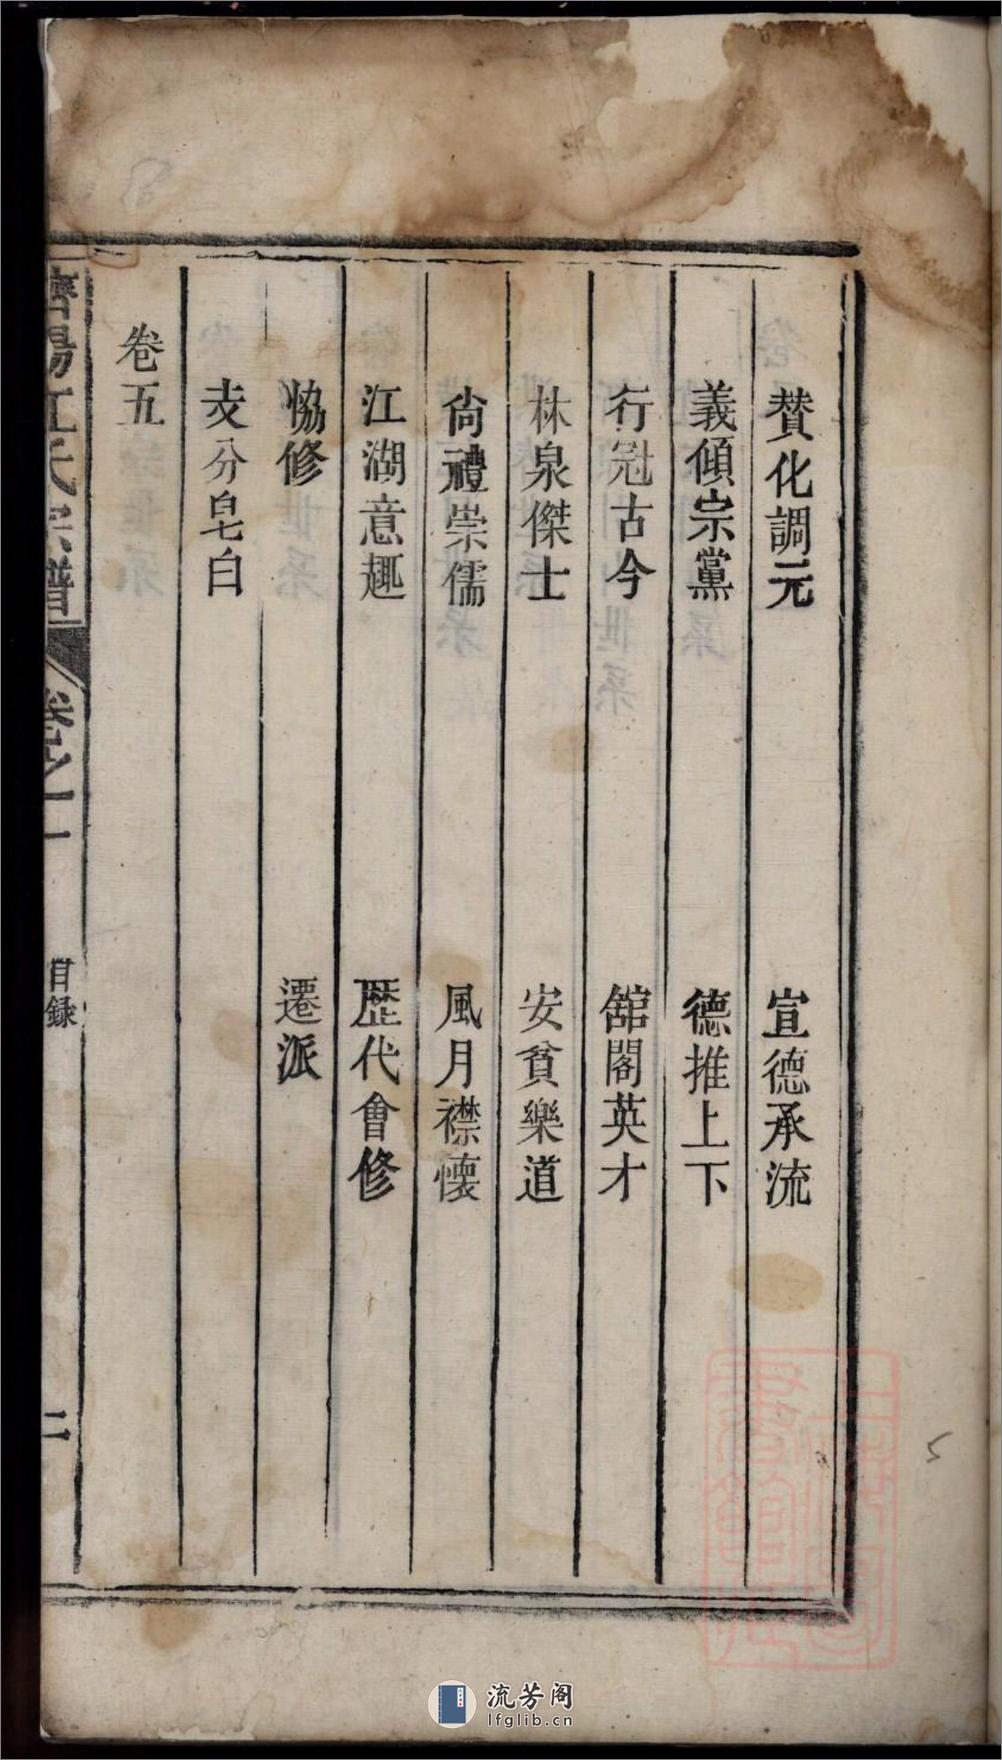 贊化調元　宣德承流
義傾宗黨　德推上下
行冠古今　舘閣英才
林泉傑士　安貧樂道
尙禮崇儒　風月襟懷
江湖意趣　歷代會修
恊修　遷派
支分皂白
卷五
濟陽江氏宗譜　卷之一　目録　二
流芳阁
lfglib.cn